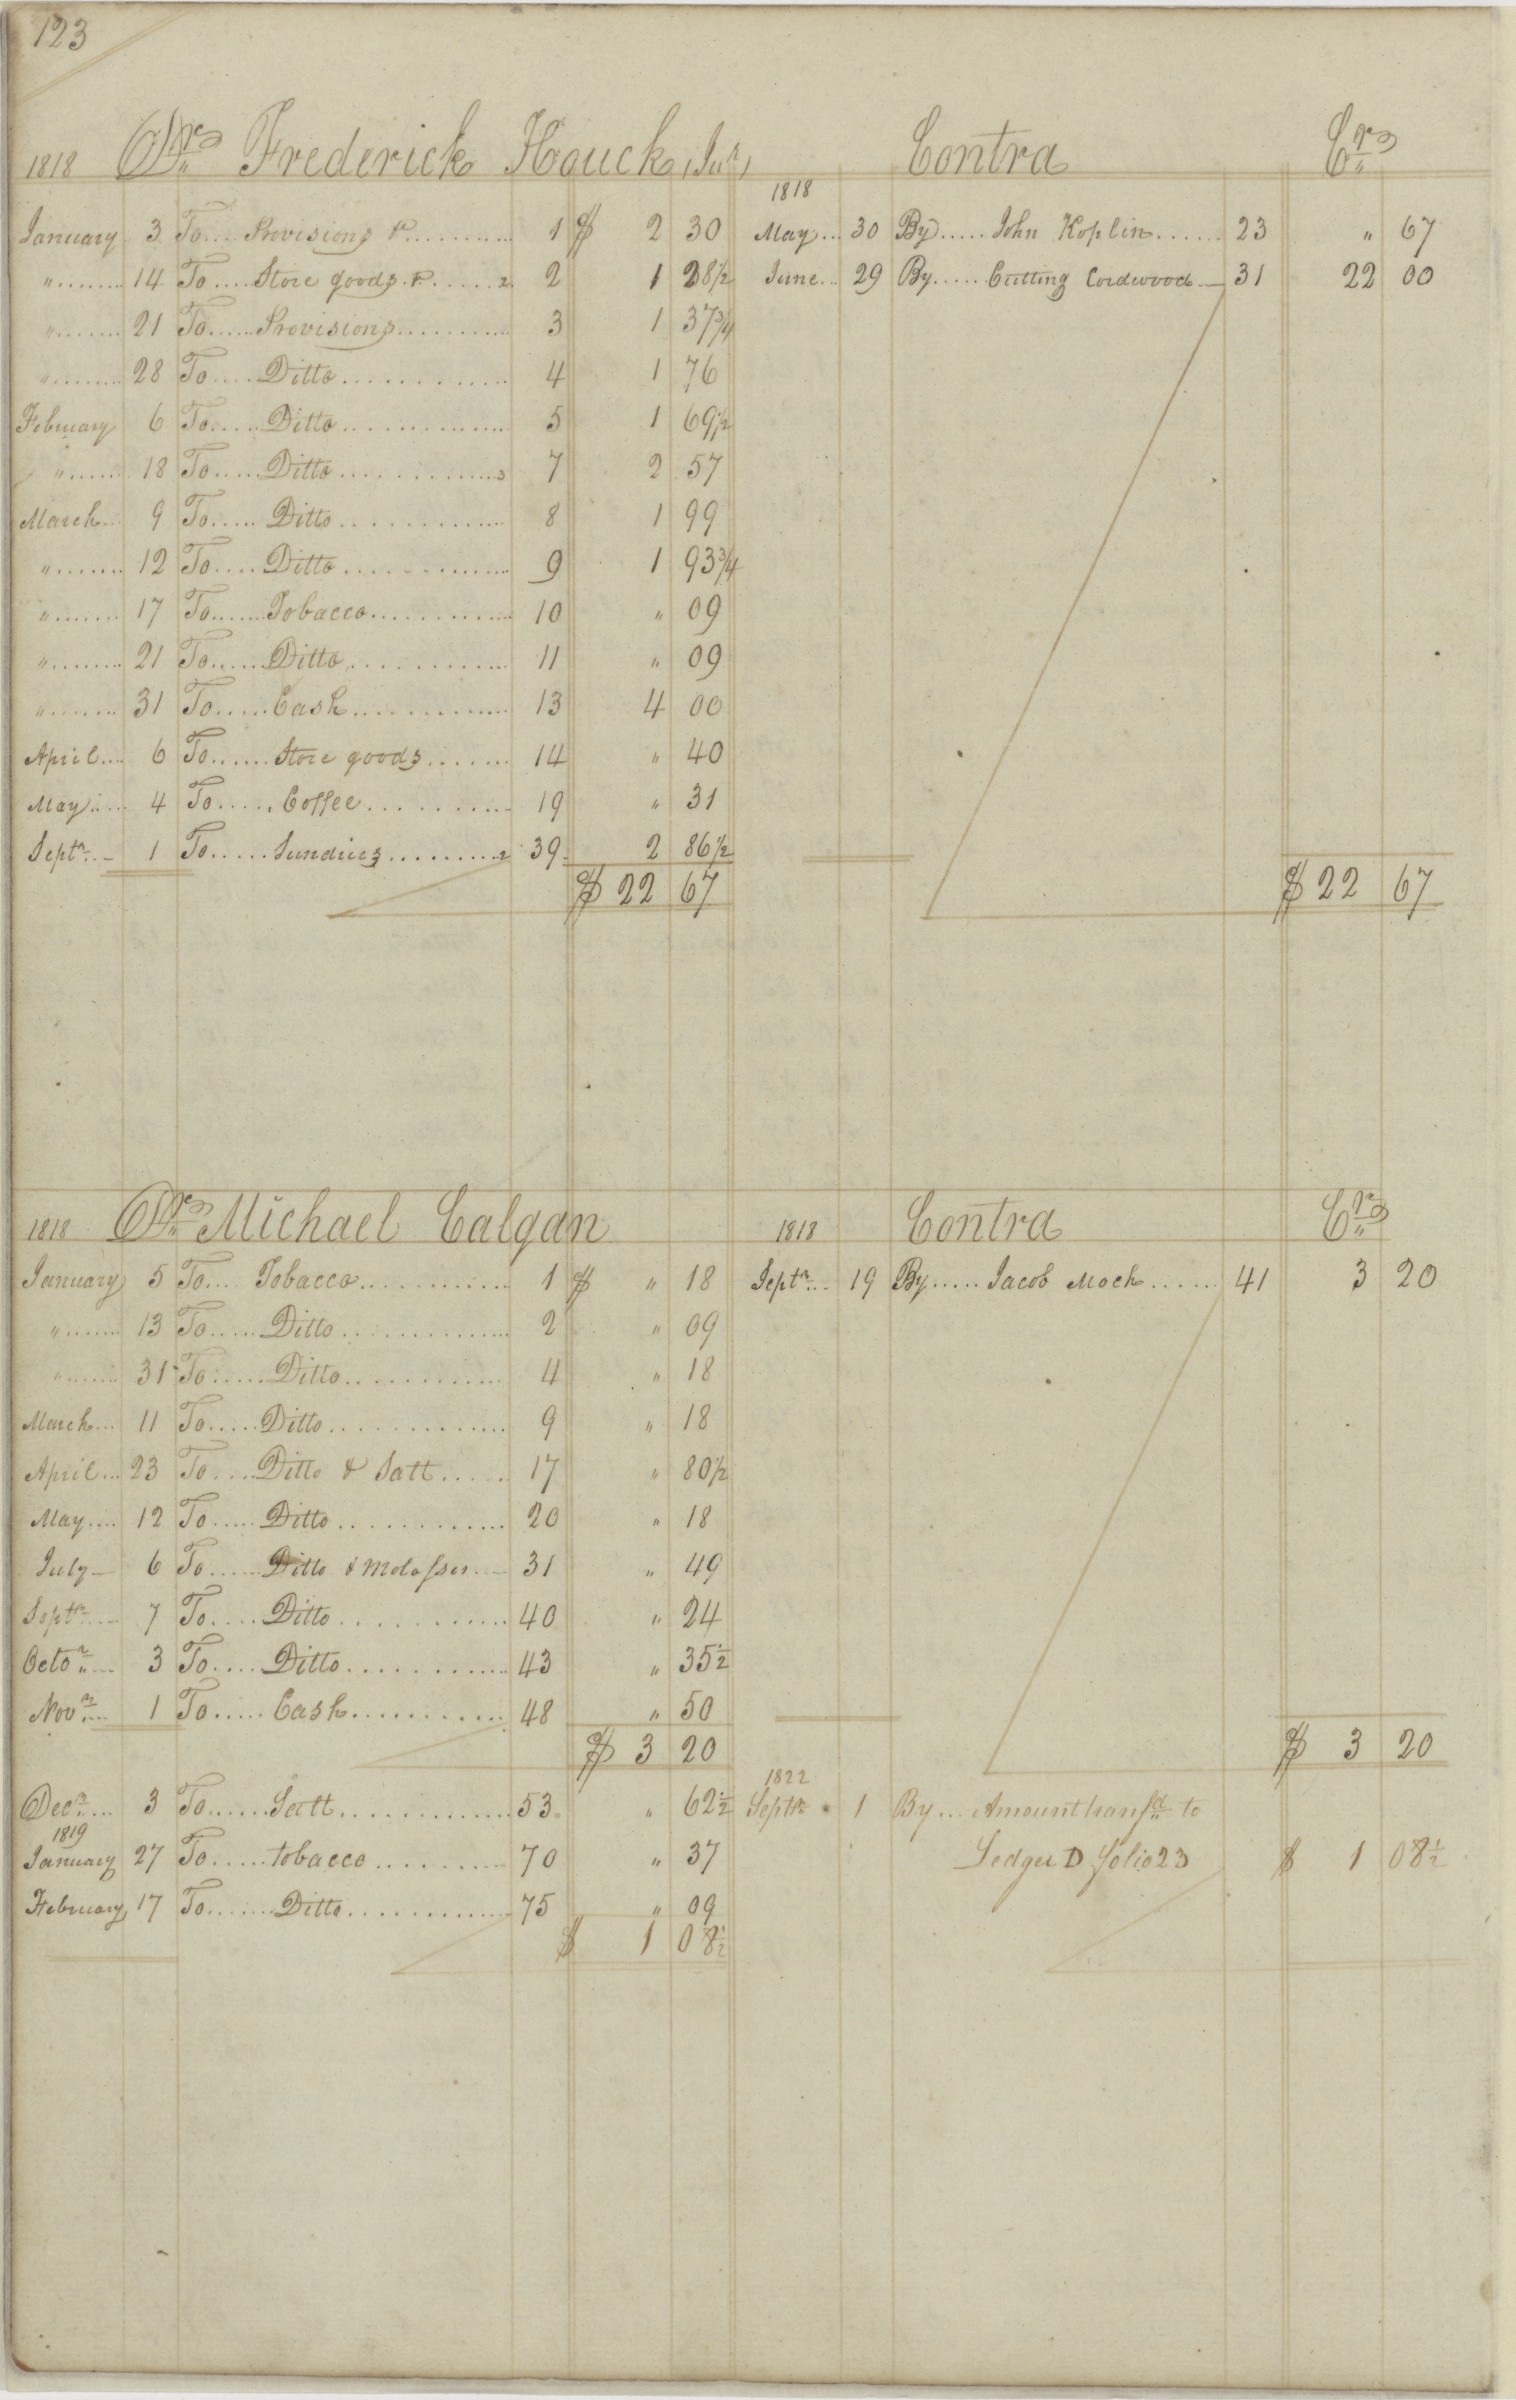 123
1818 Dr Frederick Houck, Jur,
January 3 To.... Provisions &c 1 $ 2 30
" 14 To.... Store goods &c 2 1 28½
" 21 To.... Provisions 3 1 37¾
" 28 To.... Ditto 4 1 76
February 6 To.... Ditto 5 1 69½
" 18 To.... Ditto 7 2 57
March 9 To.... Ditto 8 1 99
" 12 To.... Ditto 9 1 93¾
" 17 To.... Tobacco 10 " 09
" 21 To.... Ditto 11 " 09
" 31 To.... Cash 13 4 00
April 6 To.... Store goods 14 " 40
May 4 To.... Coffee 19 " 31
Septr 1 To.... Sundries 39 2 86½
$ 22 67
Contra Cr
1818
May 30 By.... John Koplin 23 " 67
June 29 By.... Cutting Cordwood 31 22 00
$ 22 67
1818 Dr Michael Calgan
January 5 To.... Tobacco 1 $ " 18
" 13 To.... Ditto 2 " 09
" 31 To.... Ditto 4 " 18
March 11 To.... Ditto 9 " 18
April 23 To.... Ditto & Salt 17 " 80½
May 12 To.... Ditto 20 " 18
July 6 To.... Ditto & Molasses 31 " 49
Septr 7 To.... Ditto 40 " 24
Octor 3 To.... Ditto 43 " 35½
Novr 1 To.... Cash 48 " 50
$ 3 20
Decr 3 To.... Salt 53 " 62½
1819
January 27 To.... tobacco 70 " 37
February 17 To.... Ditto 75 " 09
$ 1 08½
1818 Contra Cr
Septr 19 By.... Jacob Mock 41 3 20
$ 3 20
1822
Septr 1 By... Amount transfd to
Ledger D folio 23 $ 1 08½